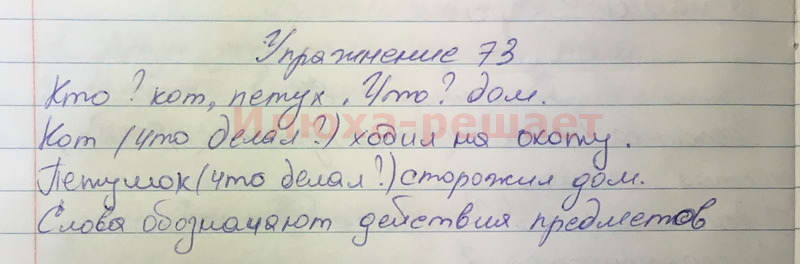 Упражнение 73
Кто? кот, петух. Что? дом.
Илюха-решает
Кот (что делал?) ходил на охоту.
Петушок (что делал?) сторожил дом.
Слова обозначают действия предметов